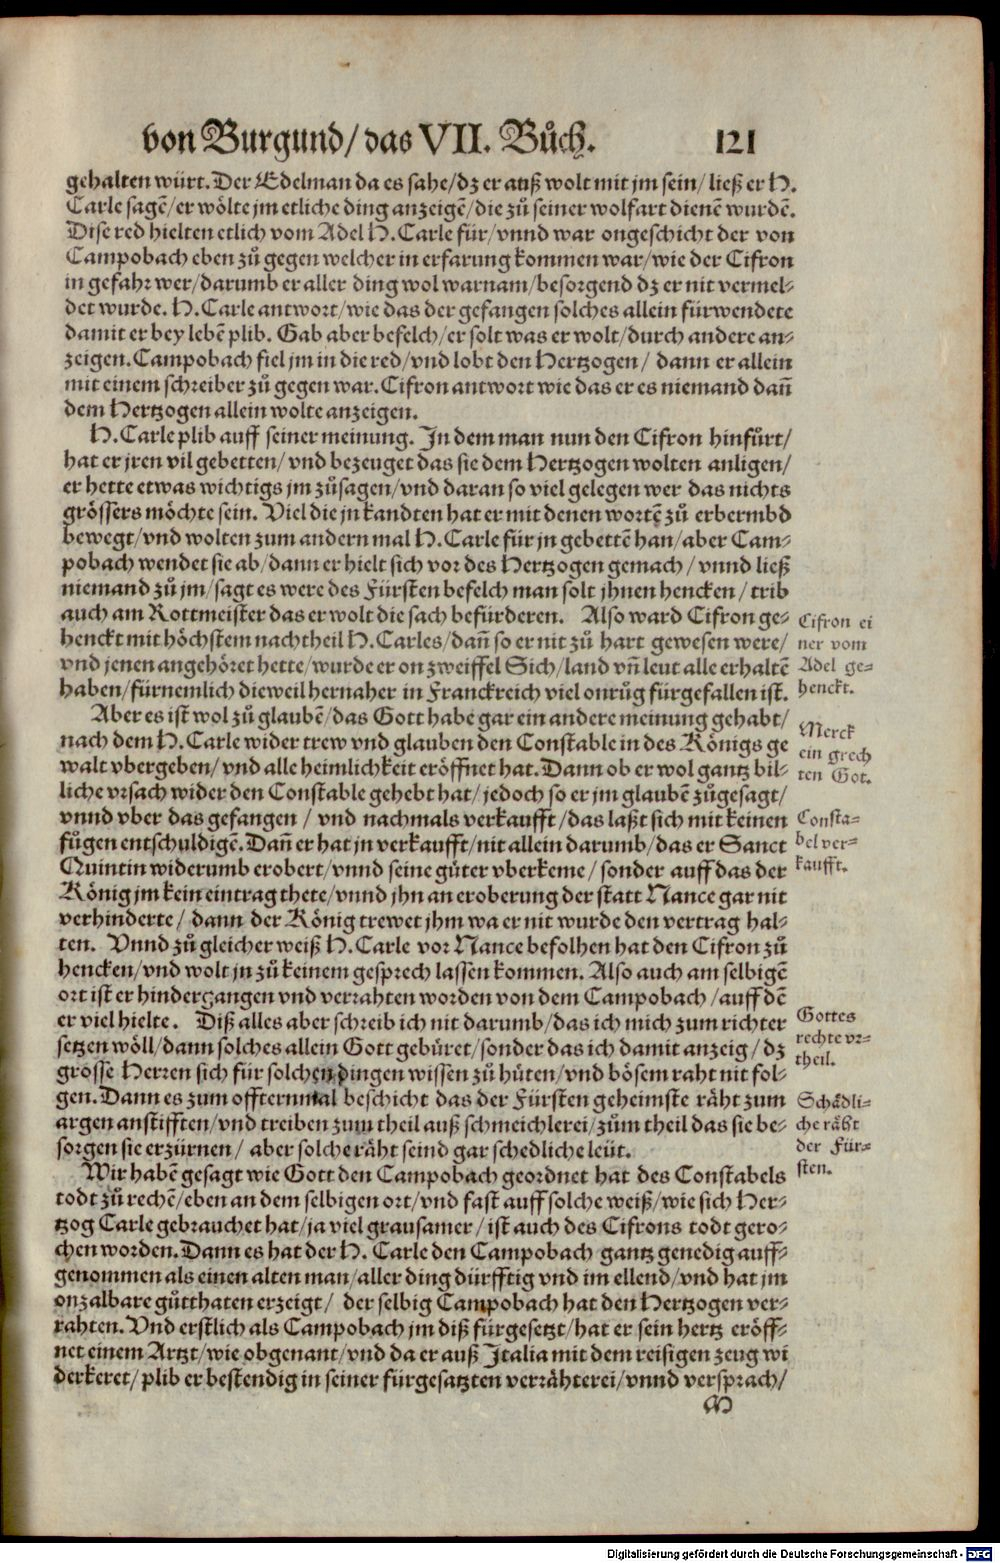 von Burgund/das VII. Bůch. 121
gehalten würt. Der Edelman da es sahe/dz er auß wolt mit jm sein/ließ er H.
Carle sagē/er wölte jm etliche ding anzeigē/die zů seiner wolfart dienē wurdē.
Dise red hielten etlich vom Adel H. Carle für/vnnd war ongeschicht der von
Campobach eben zů gegen welcher in erfarung kommen war/wie der Cifron
in gefahr wer/darumb er aller ding wol warnam/besorgend dz er nit vermel-
det wurde. H. Carle antwort/wie das der gefangen solches allein fürwendete
damit er bey lebē plib. Gab aber befelch/er solt was er wolt/durch andere an-
zeigen. Campobach fiel jm in die red/vnd lobt den Hertzogen/ dann er allein
mit einem schreiber zů gegen war. Cifron antwort wie das er es niemand dañ
dem Hertzogen allein wolte anzeigen.
H. Carle plib auff seiner meinung. In dem man nun den Cifron hinfůrt/
hat er jren vil gebetten/vnd bezeuget das sie dem Hertzogen wolten anligen/
er hette etwas wichtigs jm zůsagen/vnd daran so viel gelegen wer das nichts
grössers möchte sein. Viel die jn kandten hat er mit denen wortē zů erbermbd
bewegt/vnd wolten zum andern mal H. Carle für jn gebettē han/aber Cam-
pobach wendet sie ab/dann er hielt sich vor des Hertzogen gemach/vnnd ließ
niemand zů jm/sagt es were des Fürsten befelch man solt jhnen hencken/trib
auch am Rottmeister das er wolt die sach befürderen. Also ward Cifron ge-
henckt mit höchstem nachtheil H. Carles/dañ so er nit zů hart gewesen were/
vnd jenen angehöret hette/wurde er on zweiffel Sich/land vñ leut alle erhaltē
haben/fürnemlich dieweil hernaher in Franckreich viel onrůg fürgefallen ist.
Cifron ei
ner vom
Adel ge-
henckt.
Aber es ist wol zů glaubē/das Gott habe gar ein andere meinung gehabt/
nach dem H. Carle wider trew vnd glauben den Constable in des Königs ge
walt vbergeben/vnd alle heimlichkeit eröffnet hat. Dann ob er wol gantz bil-
liche vrsach wider den Constable gehebt hat/jedoch so er jm glaubē zůgesagt/
vnnd vber das gefangen/ vnd nachmals verkaufft/das laßt sich mit keinen
fůgen entschuldigē. Dañ er hat jn verkaufft/nit allein darumb/das er Sanct
Quintin widerumb erobert/vnnd seine gůter vberkeme/sonder auff das der
König jm kein eintrag thete/vnnd jhn an eroberung der statt Nance gar nit
verhinderte/ dann der König trewet jhm wa er nit wurde den vertrag hal-
ten. Vnnd zů gleicher weiß H. Carle vor Nance befolhen hat den Cifron zů
hencken/vnd wolt jn zů keinem gesprech lassen kommen. Also auch am selbigē
ort ist er hindergangen vnd verrahten worden von dem Campobach/auff dē
er viel hielte. Diß alles aber schreib ich nit darumb/das ich mich zum richter
setzen wöll/dann solches allein Gott gebüret/sonder das ich damit anzeig/dz
grosse Herren sich für solchen dingen wissen zů hůten/vnd bösem raht nit fol-
gen. Dann es zum offternmal beschicht das der Fürsten geheimste räht zum
argen anstifften/vnd treiben zum theil auß schmeichlerei/zům theil das sie be-
sorgen sie erzürnen/ aber solche räht seind gar schedliche leüt.
Merck
ein grech
ten Got.
Consta-
bel ver-
kaufft.
Gottes
rechte vr-
theil.
Schädli-
che räht
der Für-
sten.
Wir habē gesagt wie Gott den Campobach geordnet hat des Constabels
todt zů rechē/eben an dem selbigen ort/vnd fast auff solche weiß/wie sich Her-
tzog Carle gebrauchet hat/ja viel grausamer/ist auch des Cifrons todt gero-
chen worden. Dann es hat der H. Carle den Campobach gantz genedig auff-
genommen als einen alten man/aller ding dürfftig vnd im ellend/vnd hat jm
onzalbare gůtthaten erzeigt/ der selbig Campobach hat den Hertzogen ver-
rahten. Vnd erstlich als Campobach jm diß fürgesetzt/hat er sein hertz eröff-
net einem Artzt/wie obgenant/vnd da er auß Italia mit dem reisigen zeug wi
derkeret/plib er bestendig in seiner fürgesatzten verrähterei/vnnd versprach/
M
Digitalisierung gefördert durch die Deutsche Forschungsgemeinschaft - DFG